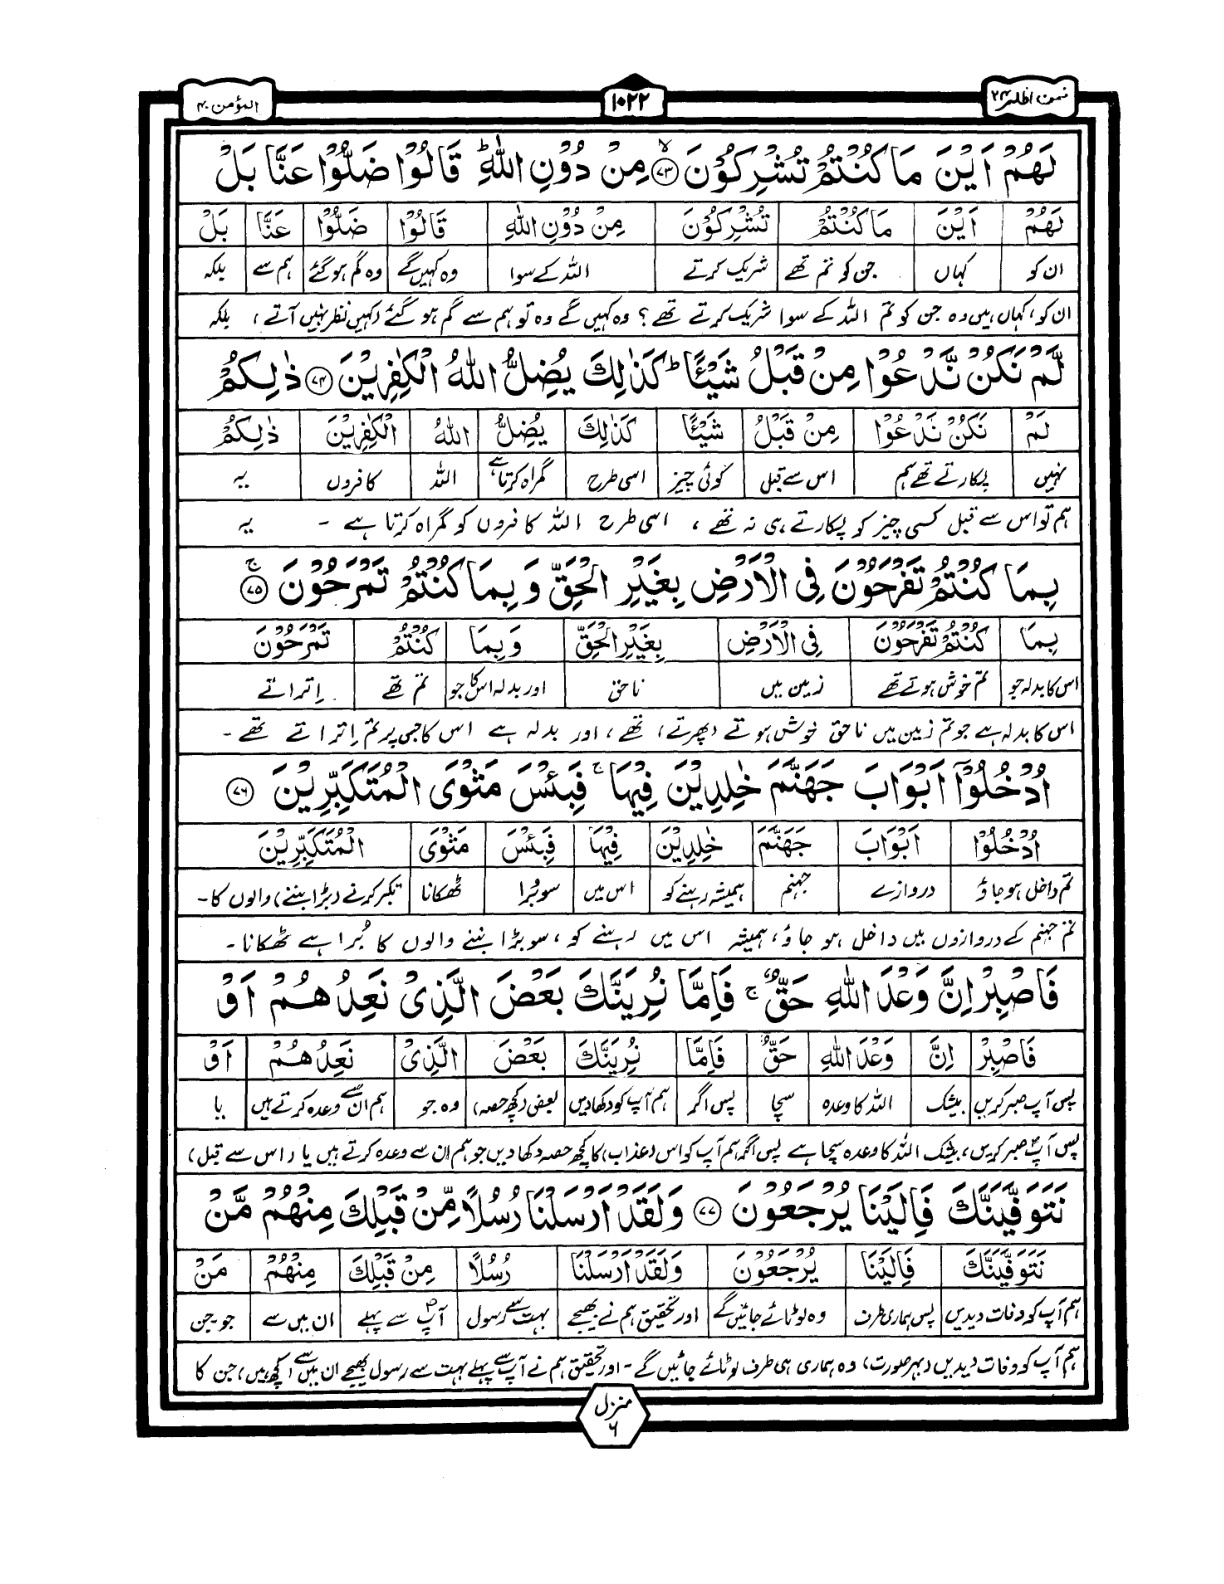 المؤمن ۴۰
۱۰۲۲
فمن اظلم ۲۴
لَهُمْ اَيْنَ مَا كُنْتُمْ تُشْرِكُوْنَ ۙ﴿۷۳﴾ مِنْ دُوْنِ اللّٰهِ ؕ قَالُوْا ضَلُّوْا عَنَّا بَلْ
لَهُمْ اَيْنَ مَا كُنْتُمْ تُشْرِكُوْنَ مِنْ دُوْنِ اللّٰهِ قَالُوْا ضَلُّوْا عَنَّا بَلْ
ان کو کہاں جن کو تم تھے شریک کرتے اللہ کے سوا وہ کہیں گے وہ گم ہو گئے ہم سے بلکہ
ان کو، کہاں ہیں وہ جن کو تم اللہ کے سوا شریک کرتے تھے؟ وہ کہیں گے وہ تو ہم سے گم ہو گئے (کہیں نظر نہیں آتے)، بلکہ
لَّمْ نَكُنْ نَّدْعُوْا مِنْ قَبْلُ شَيْئًا ؕ كَذٰلِكَ يُضِلُّ اللّٰهُ الْكٰفِرِيْنَ ﴿۷۴﴾ ذٰلِكُمْ
لَمْ نَكُنْ نَدْعُوْا مِنْ قَبْلُ شَيْئًا كَذٰلِكَ يُضِلُّ اللّٰهُ الْكٰفِرِيْنَ ذٰلِكُمْ
نہیں پکارتے تھے ہم اس سے قبل کوئی چیز اسی طرح گمراہ کرتا ہے اللہ کافروں یہ
ہم تو اس سے قبل کسی چیز کو پکارتے ہی نہ تھے، اسی طرح اللہ کافروں کو گمراہ کرتا ہے ۔ یہ
بِمَا كُنْتُمْ تَفْرَحُوْنَ فِى الْاَرْضِ بِغَيْرِ الْحَقِّ وَبِمَا كُنْتُمْ تَمْرَحُوْنَ ۚ﴿۷۵﴾
بِمَا كُنْتُمْ تَفْرَحُوْنَ فِى الْاَرْضِ بِغَيْرِ الْحَقِّ وَبِمَا كُنْتُمْ تَمْرَحُوْنَ
اس کا بدلہ جو تم خوش ہوتے تھے زمین میں ناحق اور بدلہ اس کا جو تم تھے اِتراتے
اس کا بدلہ ہے جو تم زمین میں ناحق خوش ہوتے (پھرتے) تھے، اور بدلہ ہے اس کا جس پر تم اِتراتے تھے ۔
اُدْخُلُوْٓا اَبْوَابَ جَهَنَّمَ خٰلِدِيْنَ فِيْهَا ۚ فَبِئْسَ مَثْوَى الْمُتَكَبِّرِيْنَ ﴿۷۶﴾
اُدْخُلُوْٓا اَبْوَابَ جَهَنَّمَ خٰلِدِيْنَ فِيْهَا فَبِئْسَ مَثْوَى الْمُتَكَبِّرِيْنَ
تم داخل ہو جاؤ دروازے جہنم ہمیشہ رہنے کو اس میں سو بُرا ٹھکانا تکبر کرنے (بڑا بننے) والوں کا ۔
تم جہنم کے دروازوں میں داخل ہو جاؤ، ہمیشہ اس میں رہنے کو، سو بڑا بننے والوں کا بُرا ہے ٹھکانا ۔
فَاصْبِرْ اِنَّ وَعْدَ اللّٰهِ حَقٌّ ۚ فَاِمَّا نُرِيَنَّكَ بَعْضَ الَّذِىْ نَعِدُهُمْ اَوْ
فَاصْبِرْ اِنَّ وَعْدَ اللّٰهِ حَقٌّ فَاِمَّا نُرِيَنَّكَ بَعْضَ الَّذِىْ نَعِدُهُمْ اَوْ
پس آپ صبر کریں بیشک اللہ کا وعدہ سچا پس اگر ہم آپ کو دکھا دیں بعض (کچھ حصہ) وہ جو ہم ان سے وعدہ کرتے ہیں یا
پس آپ صبر کریں، بیشک اللہ کا وعدہ سچا ہے پس اگر ہم آپ کو اس (عذاب) کا کچھ حصہ دکھا دیں جو ہم ان سے وعدہ کرتے ہیں یا (اس سے قبل)
نَتَوَفَّيَنَّكَ فَاِلَيْنَا يُرْجَعُوْنَ ﴿۷۷﴾ وَلَقَدْ اَرْسَلْنَا رُسُلًا مِّنْ قَبْلِكَ مِنْهُمْ مَّنْ
نَتَوَفَّيَنَّكَ فَاِلَيْنَا يُرْجَعُوْنَ وَلَقَدْ اَرْسَلْنَا رُسُلًا مِنْ قَبْلِكَ مِنْهُمْ مَنْ
ہم آپ کو وفات دیدیں پس ہماری طرف وہ لوٹائے جائیں گے اور تحقیق ہم نے بھیجے بہت سے رسول آپؐ سے پہلے ان میں سے جو جن
ہم آپ کو وفات دیدیں (بہرصورت) وہ ہماری ہی طرف لوٹائے جائیں گے ۔ اور تحقیق ہم نے آپ سے پہلے بہت سے رسول بھیجے ان میں سے (کچھ ہیں) جن کا
منزل ۶